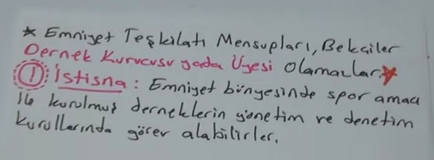 * Emniyet Teşkilatı Mensupları, Bekçiler
Dernek Kurucusu yada Üyesi Olamazlar*
① İstisna: Emniyet bünyesinde spor amacı
ile kurulmuş derneklerin yönetim ve denetim
kurullarında görev alabilirler.